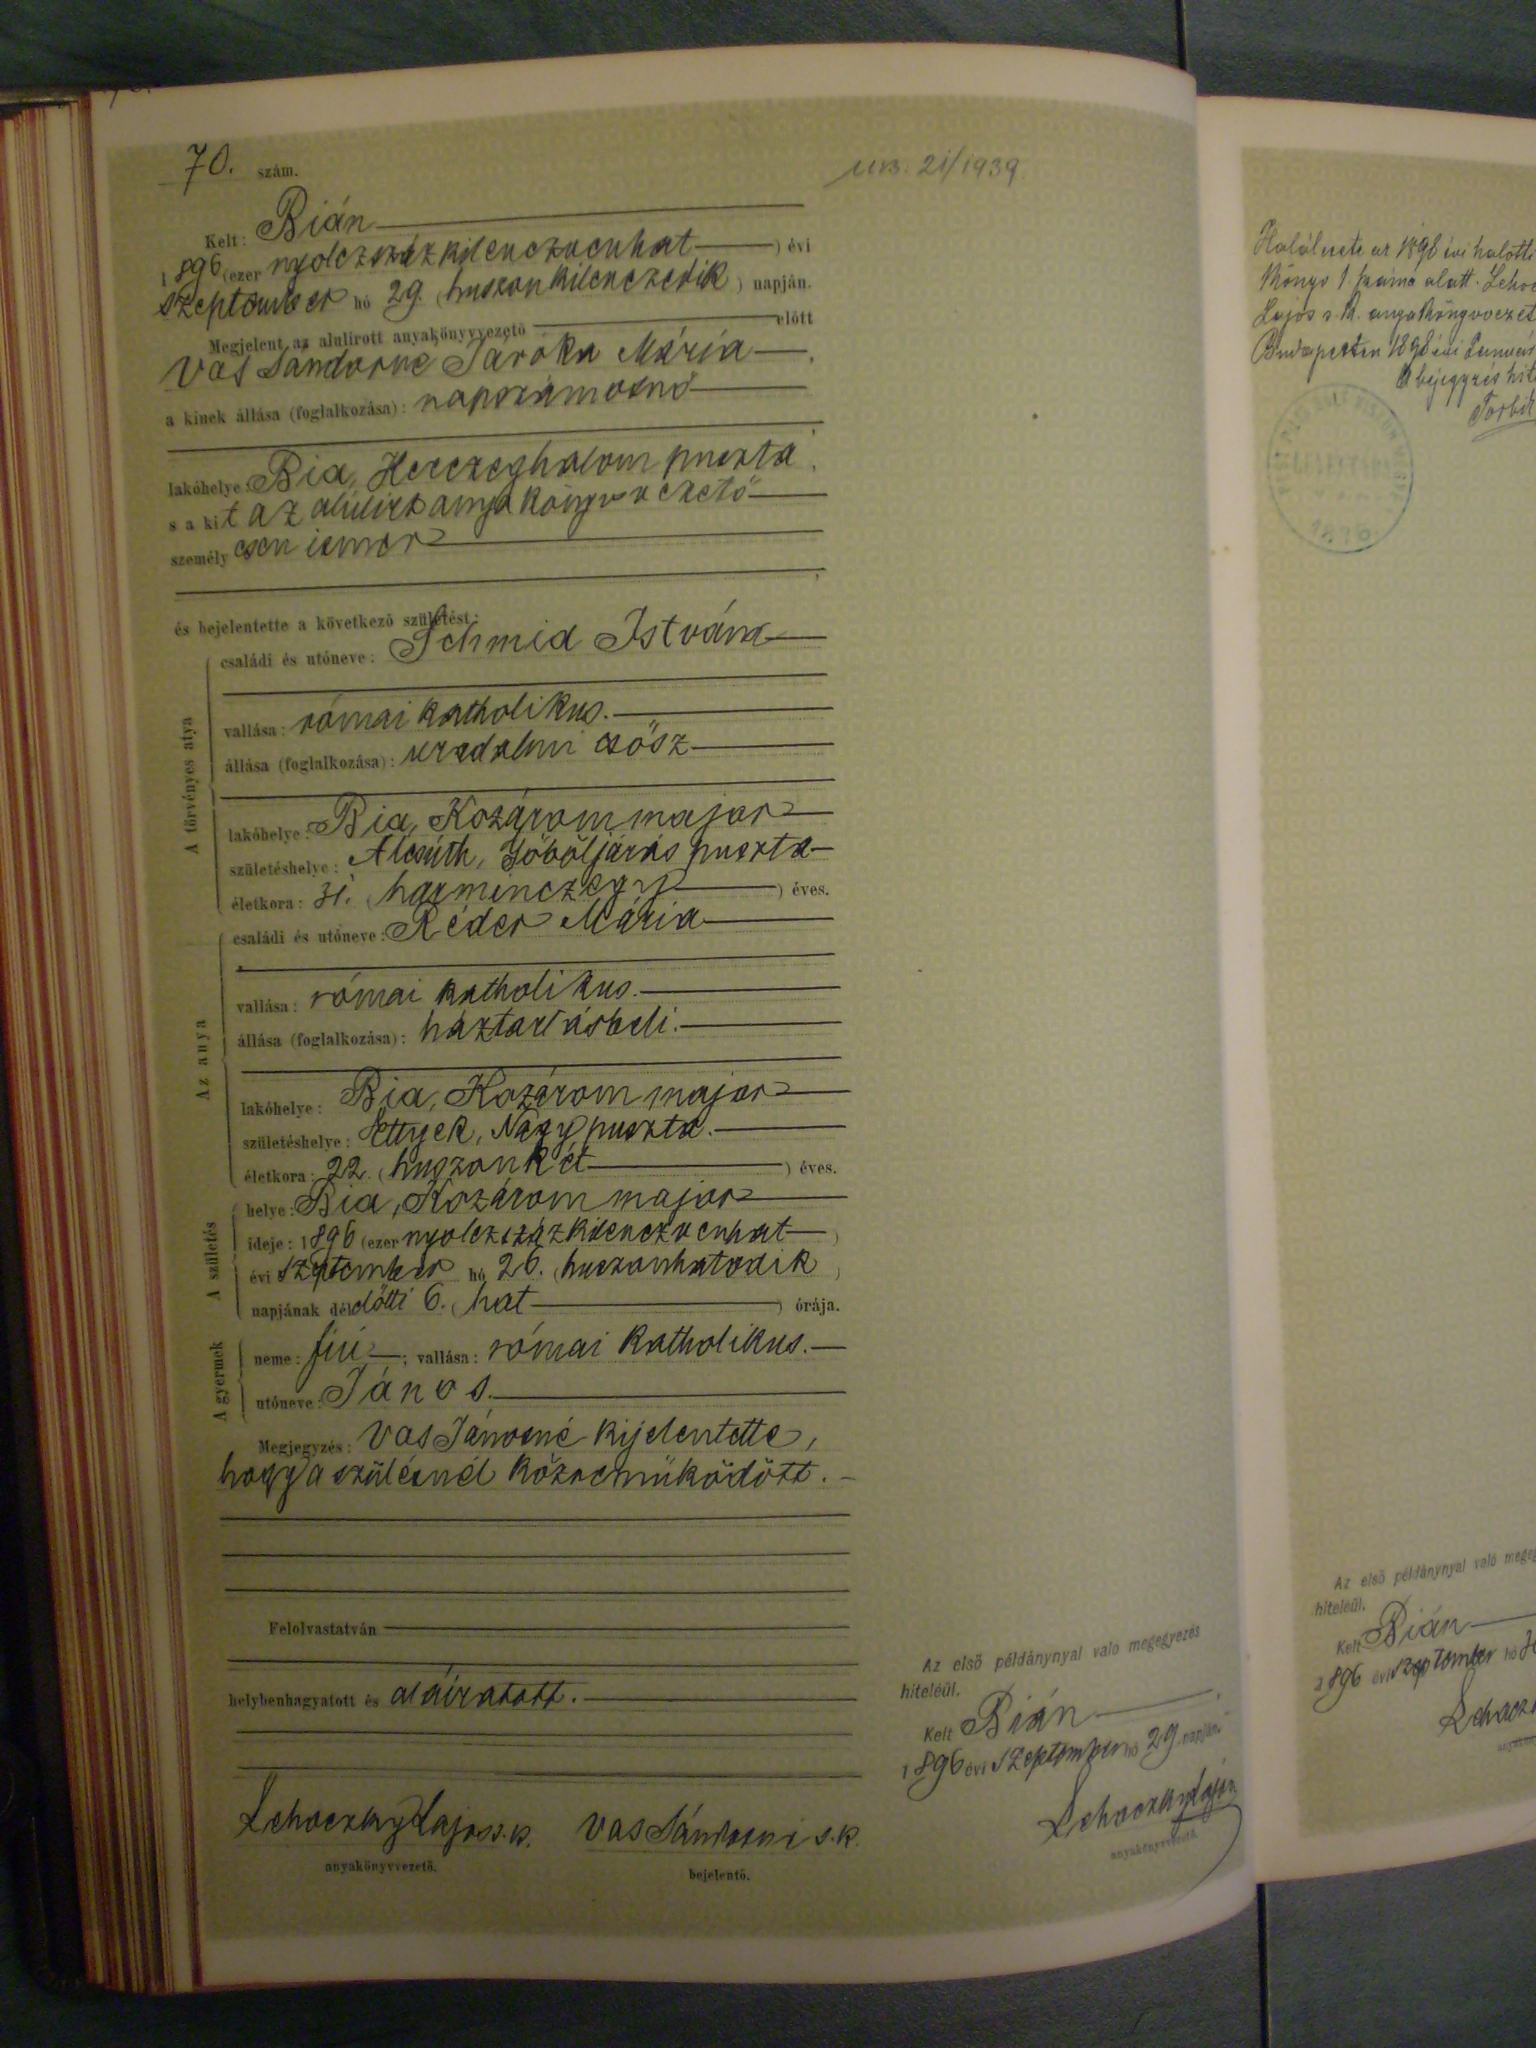 70. szám.
urs. 21/1939.
Kelt: Bián
1896 (ezer nyolczszázkilenczvenhat) évi
szeptember hó 29. (huszonkilenczedik) napján.
Megjelent az alulirott anyakönyvvezető előtt
Vas Sándorné Saroka Mária
a kinek állása (foglalkozása): napszámosnő
lakóhelye: Bia, Herczeghalom puszta,
s a kit az alulirt anyakönyvvezető
személyesen ismer
és bejelentette a következő születést:
A törvényes atya
családi és utóneve: Schmid István
vallása: római katholikus.
állása (foglalkozása): uradalmi csősz
lakóhelye: Bia, Kozárom major
születéshelye: Alcsúth, Göböljárás puszta
életkora: 31. (harminczegy) éves.
Az anya
családi és utóneve: Réder Mária
vallása: római katholikus.
állása (foglalkozása): háztartásbeli.
lakóhelye: Bia, Kozárom major
születéshelye: Ettyek, Nagy puszta.
életkora: 22. (huszonkét) éves.
A születés
helye: Bia, Kozárom major
ideje: 1896 (ezer nyolczszázkilenczvenhat)
évi szeptember hó 26. (huszonhatodik)
napjának délelőtti 6. (hat) órája.
A gyermek
neme: fiú; vallása: római katholikus.
utóneve: János.
Megjegyzés: Vas Jánosné kijelentette,
hogy a szülésnél közreműködött.
Felolvastatván
helybenhagyatott és aláíratott.
Lehoczky Lajos s. k.
anyakönyvvezető.
Vas Sándorné s. k.
bejelentő.
Az első példánynyal való megegyezés
hiteléül.
Kelt Bián
1896 évi szeptember hó 29 napján.
Lehoczky Lajos
anyakönyvvezető.
Halálesete az 1898 évi halotti
könyv 1. száma alatt.
Lajos s. k. anyakönyvvezet
Budapesten 1898 évi
A bejegyzés hit
1896
Az első példánynyal való megeg
hiteléül.
Kelt Bián
1896 évi szeptember hó
Lehocz